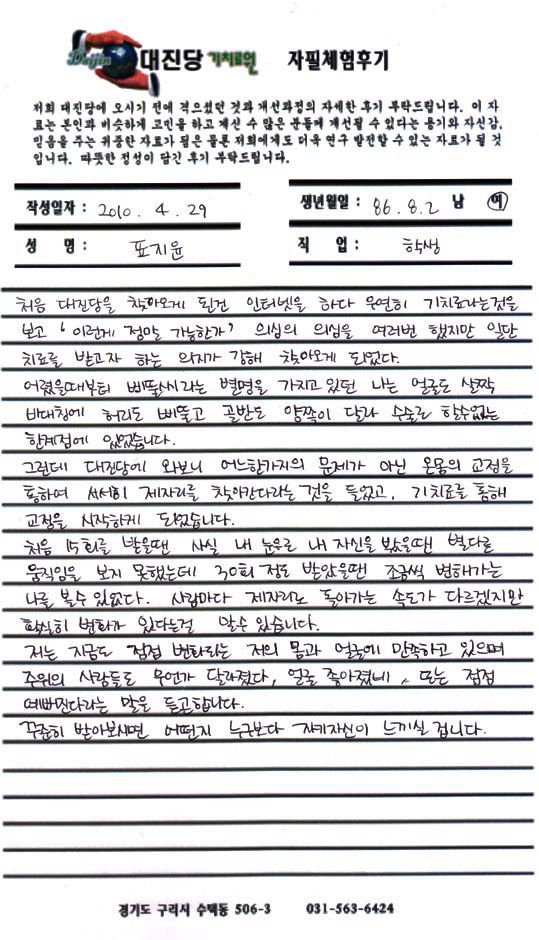 Daijin 대진당 기치료원 자필체험후기
저희 대진당에 오시기 전에 겪으셨던 것과 개선과정의 자세한 후기 부탁드립니다. 이 자
료는 본인과 비슷하게 고민을 하고 계신 수 많은 분들께 개선될 수 있다는 용기와 자신감,
믿음을 주는 귀중한 자료가 됨은 물론 저희에게도 더욱 연구 발전할 수 있는 자료가 될 것
입니다. 따뜻한 정성이 담긴 후기 부탁드립니다.
작성일자 : 2010. 4. 29 생년월일 : 86. 8. 2 남 여
성 명 : 표지윤 직 업 : 학생
처음 대진당을 찾아오게 된건 인터넷을 하다 우연히 기치료라는것을
보고 '이런게 정말 가능한가' 의심의 의심을 여러번 했지만 일단
치료를 받고자 하는 의지가 강해 찾아오게 되었다.
어렸을때부터 삐뚤씨라는 별명을 가지고 있던 나는 얼굴도 살짝
비대칭에 허리도 삐뚤고 골반도 양쪽이 달라 수술로 할수없는
한계점에 있었습니다.
그런데 대진당에 와보니 어느한가지의 문제가 아닌 온몸의 교정을
통하여 서서히 제자리를 찾아간다라는 것을 들었고, 기치료를 통해
교정을 시작하게 되었습니다.
처음 15회를 받을땐 사실 내 눈으로 내 자신을 봤을땐 별다른
움직임을 보지 못했는데 30회 정도 받았을땐 조금씩 변해가는
나를 볼수 있었다. 사람마다 제자리로 돌아가는 속도가 다르겠지만
확실히 변화가 있다는걸 알수 있습니다.
저는 지금도 점점 변화되는 저의 몸과 얼굴에 만족하고 있으며
주위의 사람들도 무언가 달라졌다, 얼굴 좋아졌네, 또는 점점
예뻐진다라는 말을 듣고합니다.
꾸준히 받아보시면 어떤지 누구보다 자기자신이 느끼실 겁니다.
경기도 구리시 수택동 506-3 031-563-6424